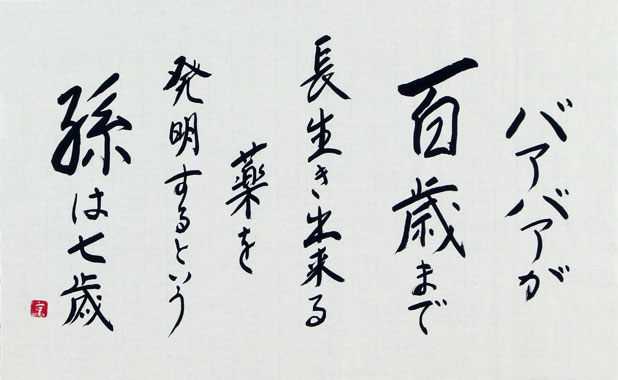 バァバァが
百歳まで
長生き出来る
薬を
発明するという
孫は七歳